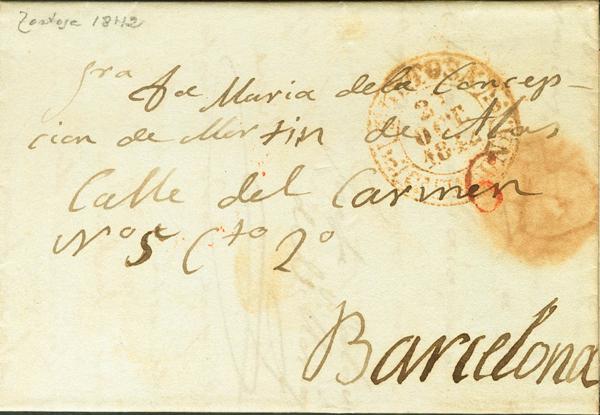 Tortosa 1842
Sra
Dª Maria dela Concep-
cion de Martin de Alos,
Calle del Carmen
Nº 5 Ctº 2º
Barcelona
TORTOSA
DIC
1842